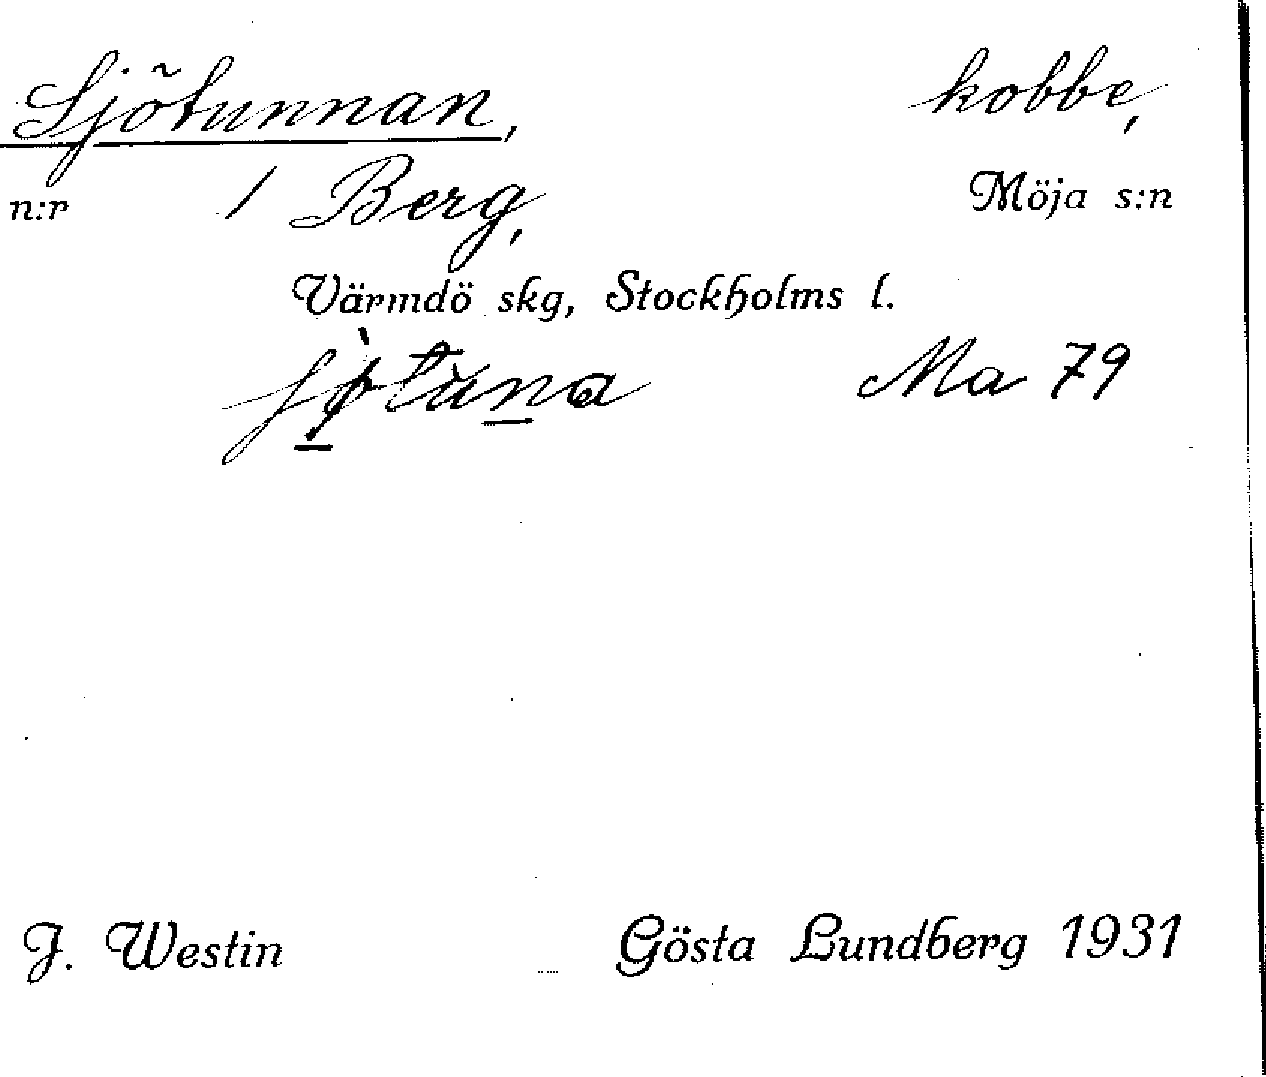 Sjötunnan, kobbe,
n:r 1 Berg, Möja s:n
Värmdö skg, Stockholms l.
Ma 79
J. Westin Gösta Lundberg 1931